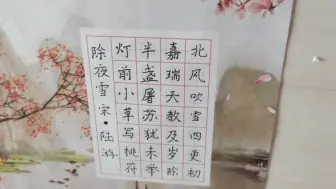 北风吹雪四更初
嘉瑞天教及岁除
半盏屠苏犹未举
灯前小草写桃符
除夜雪 宋·陆游